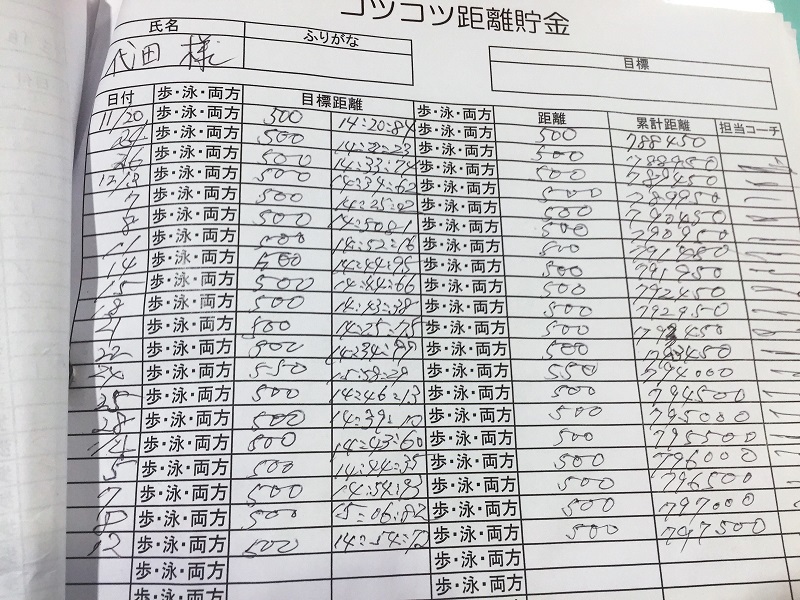 コツコツ距離貯金
氏名 ふりがな
代田 様 目標
日付 歩・泳・両方 目標距離 歩・泳・両方 距離 累計距離 担当コーチ
11/20 歩・泳・両方 500 14:20:84 歩・泳・両方 500 788450
24 歩・泳・両方 500 14:22:23 歩・泳・両方 500 788950
26 歩・泳・両方 500 14:33:74 歩・泳・両方 500 789450
歩・泳・両方 500 14:34:62 歩・泳・両方 500 789950
7 歩・泳・両方 500 14:25:02 歩・泳・両方 500 790450
8 歩・泳・両方 500 14:50:81 歩・泳・両方 500 790950
11 歩・泳・両方 500 14:52:16 歩・泳・両方 500 791450
14 歩・泳・両方 500 14:44:95 歩・泳・両方 500 791950
15 歩・泳・両方 500 14:44:66 歩・泳・両方 500 792450
18 歩・泳・両方 500 14:43:38 歩・泳・両方 500 792950
21 歩・泳・両方 500 14:25:75 歩・泳・両方 500 793450
22 歩・泳・両方 500 14:34:99 歩・泳・両方 500 793450
歩・泳・両方 550 15:58:29 歩・泳・両方 550 794000
25 歩・泳・両方 500 14:46:13 歩・泳・両方 500 794500
28 歩・泳・両方 500 14:39:10 歩・泳・両方 500 795000
歩・泳・両方 500 14:43:60 歩・泳・両方 500 795500
5 歩・泳・両方 500 14:44:35 歩・泳・両方 500 796000
7 歩・泳・両方 500 14:54:93 歩・泳・両方 500 796500
8 歩・泳・両方 500 15:06:82 歩・泳・両方 500 797000
12 歩・泳・両方 500 14:54:72 歩・泳・両方 500 797500
歩・泳・両方 歩・泳・両方
歩・泳・両方 歩・泳・両方